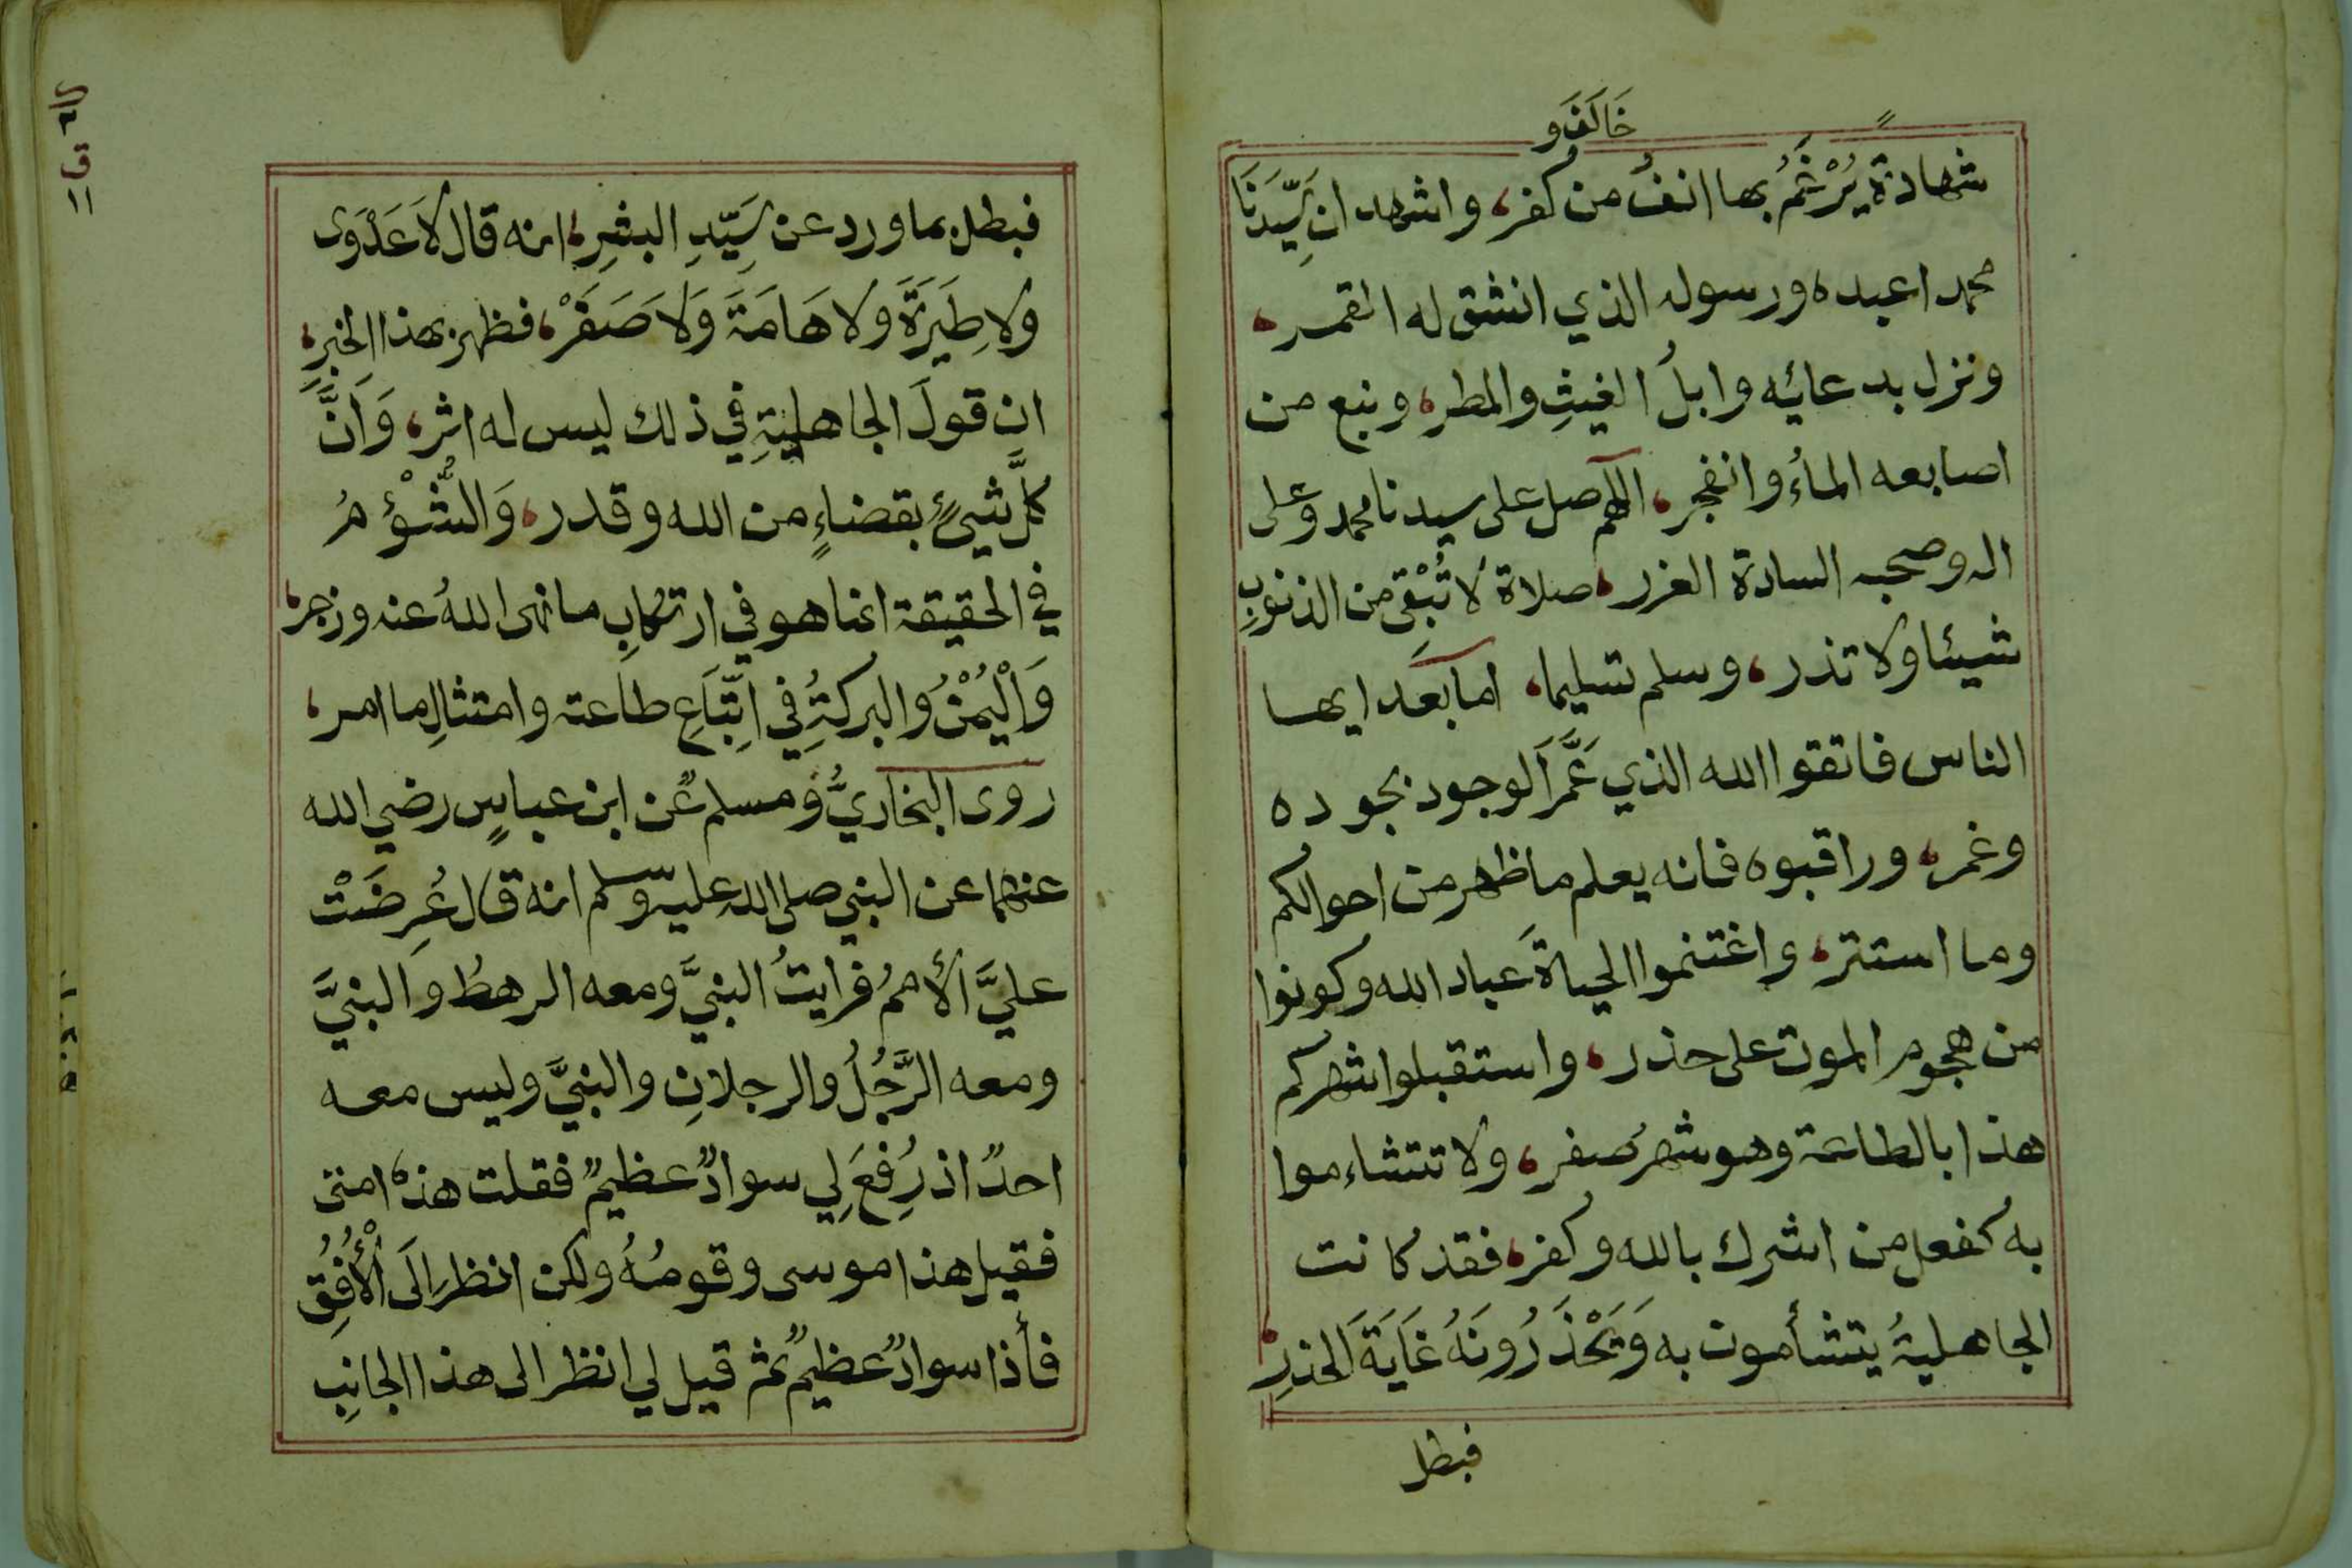 خَالَفَ وَ
شهادة يُرْغَمُ بها انفُ من كفر، واشهد ان سَيِّدَنَا
محمدا عبده ورسوله الذي انشق له القمر،
ونزل بدعائه وابلُ الغيثِ والمطر، ونبع من
اصابعه الماءُ وانفجر، اللهم صل على سيدنا محمد وعلى
اله وصحبه السادة الغرر، صلاة لا تُبْقِي من الذنوبِ
شيئا ولا تذر، وسلم تسليما، اما بعد ايها
الناس فاتقوا الله الذي عَمَّ الوجود بجوده
وغمر، وراقبوه فانه يعلم ما ظهر من احوالكم
وما استتر، واغتنموا الحياةَ عباد الله وكونوا
من هجوم الموت على حذر، واستقبلوا شهركم
هذا بالطاعة وهو شهرُ صفر، ولا تتشاءموا
به كفعل من اشرك بالله وكفر، فقد كانت
الجاهليةُ يتشأمون به وَيَحْذَرُونَهُ غَايَةَ الحذرِ،
فبطل
فبطل بما ورد عن سَيِّدِ البشرِ، انه قال لَا عَدْوَى
ولا طِيَرَةَ ولا هَامَةَ وَلَا صَفَرْ، فظهر بهذا الخبرِ،
ان قولَ الجاهليةِ في ذلك ليس له اثر، وَاَنَّ
كلَّ شيءٍ بقضاءٍ من الله وقدر، وَالشُّؤْمُ
في الحقيقة انما هو في ارتكابِ ما نهى اللهُ عنه وزجر،
وَالْيُمْنُ والبركةُ في اتِّبَاعِ طاعته وامتثالِ ما امر،
روى البخاريُّ ومسلم عن ابن عباسٍ رضي الله
عنهما عن النبي صلى الله عليه وسلم انه قال عُرِضَتْ
عليَّ الأممُ فرايتُ النبيَّ ومعه الرهطُ والنبيَّ
ومعه الرَّجُلُ والرجلانِ والنبيَّ وليس معه
احدٌ اذ رُفِعَ لِي سوادٌ عظيمٌ فقلت هذه امتى
فقيل هذا موسى وقومُهُ ولكن انظر اِلَى الْأُفُقِ
فأذا سوادٌ عظيمٌ ثم قيل لي انظر الى هذا الجانبِ